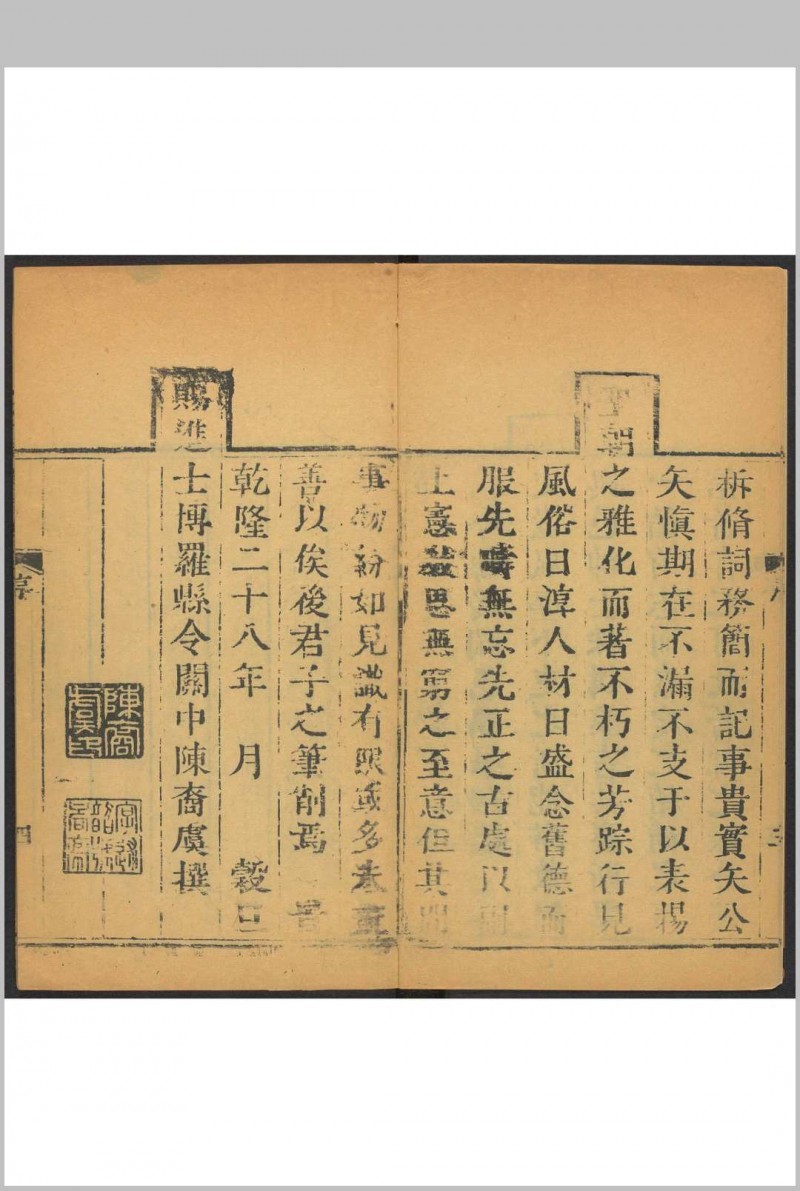 析脩詞務簡而記事貴實矢公
矢愼期在不漏不支于以表揚
朝之雅化而著不朽之芳踪行見
風俗日淳人材日盛念舊德而
服先疇無忘先正之古處以
上憲無窮之至意但其間
事物紛如見識有限或多
善以俟後君子之筆削焉 旹
乾隆二十八年 月 穀旦
賜進士博羅縣令關中陳裔虞撰
陳裔虞印
序
四